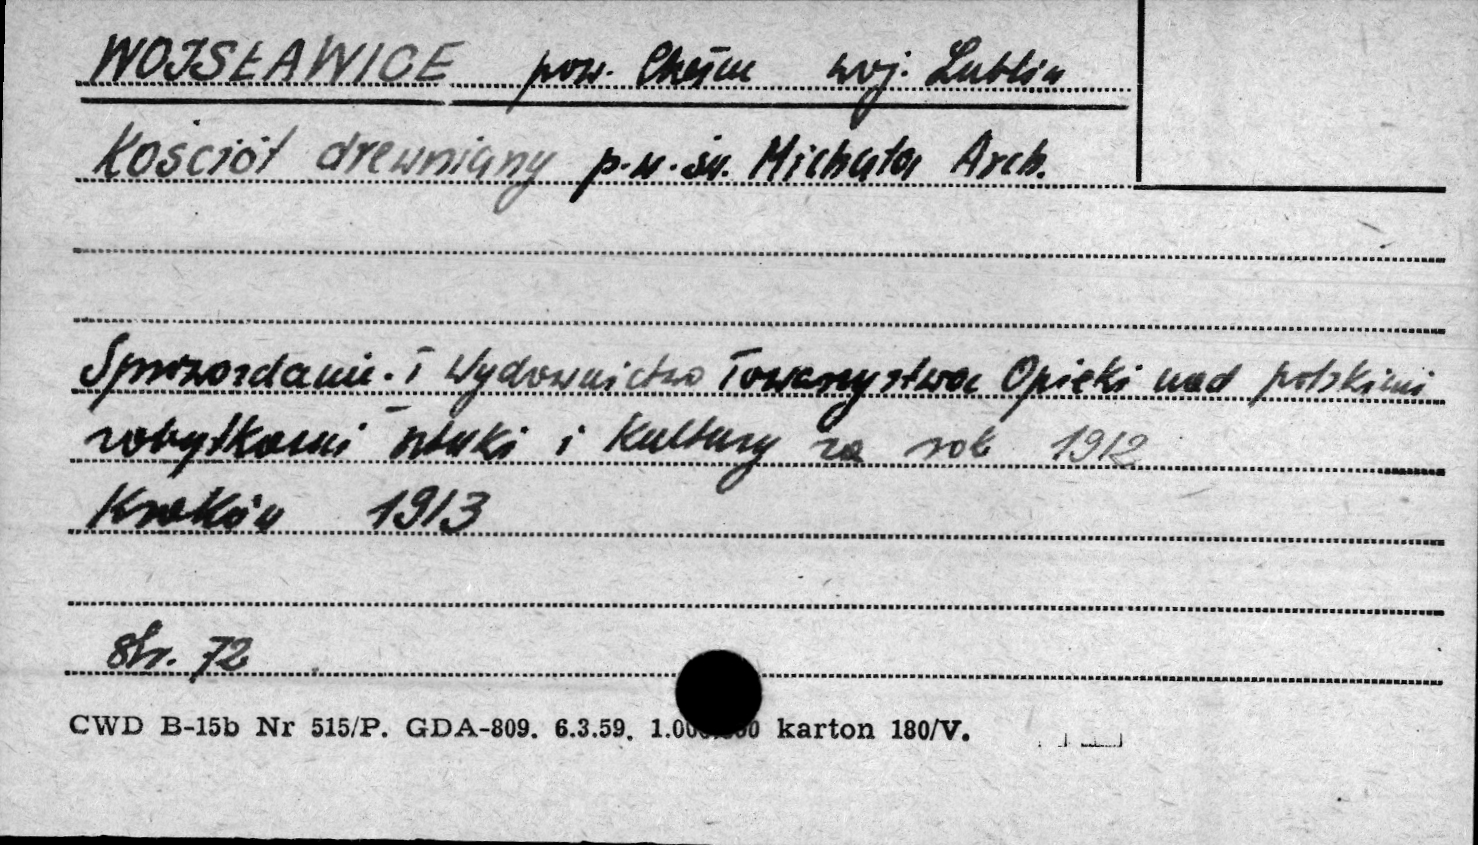 WOJSŁAWICE pow. Chełm woj. Lublin
Kościół drewniany p.w. św. Michała Arch.
Sprawozdanie i Wydawnictwo Towarzystwa Opieki nad polskimi
zabytkami sztuki i Kultury za rok 1912
Kraków 1913
Str. 72
CWD B-15b Nr 515/P. GDA-809. 6.3.59. karton 180/V.